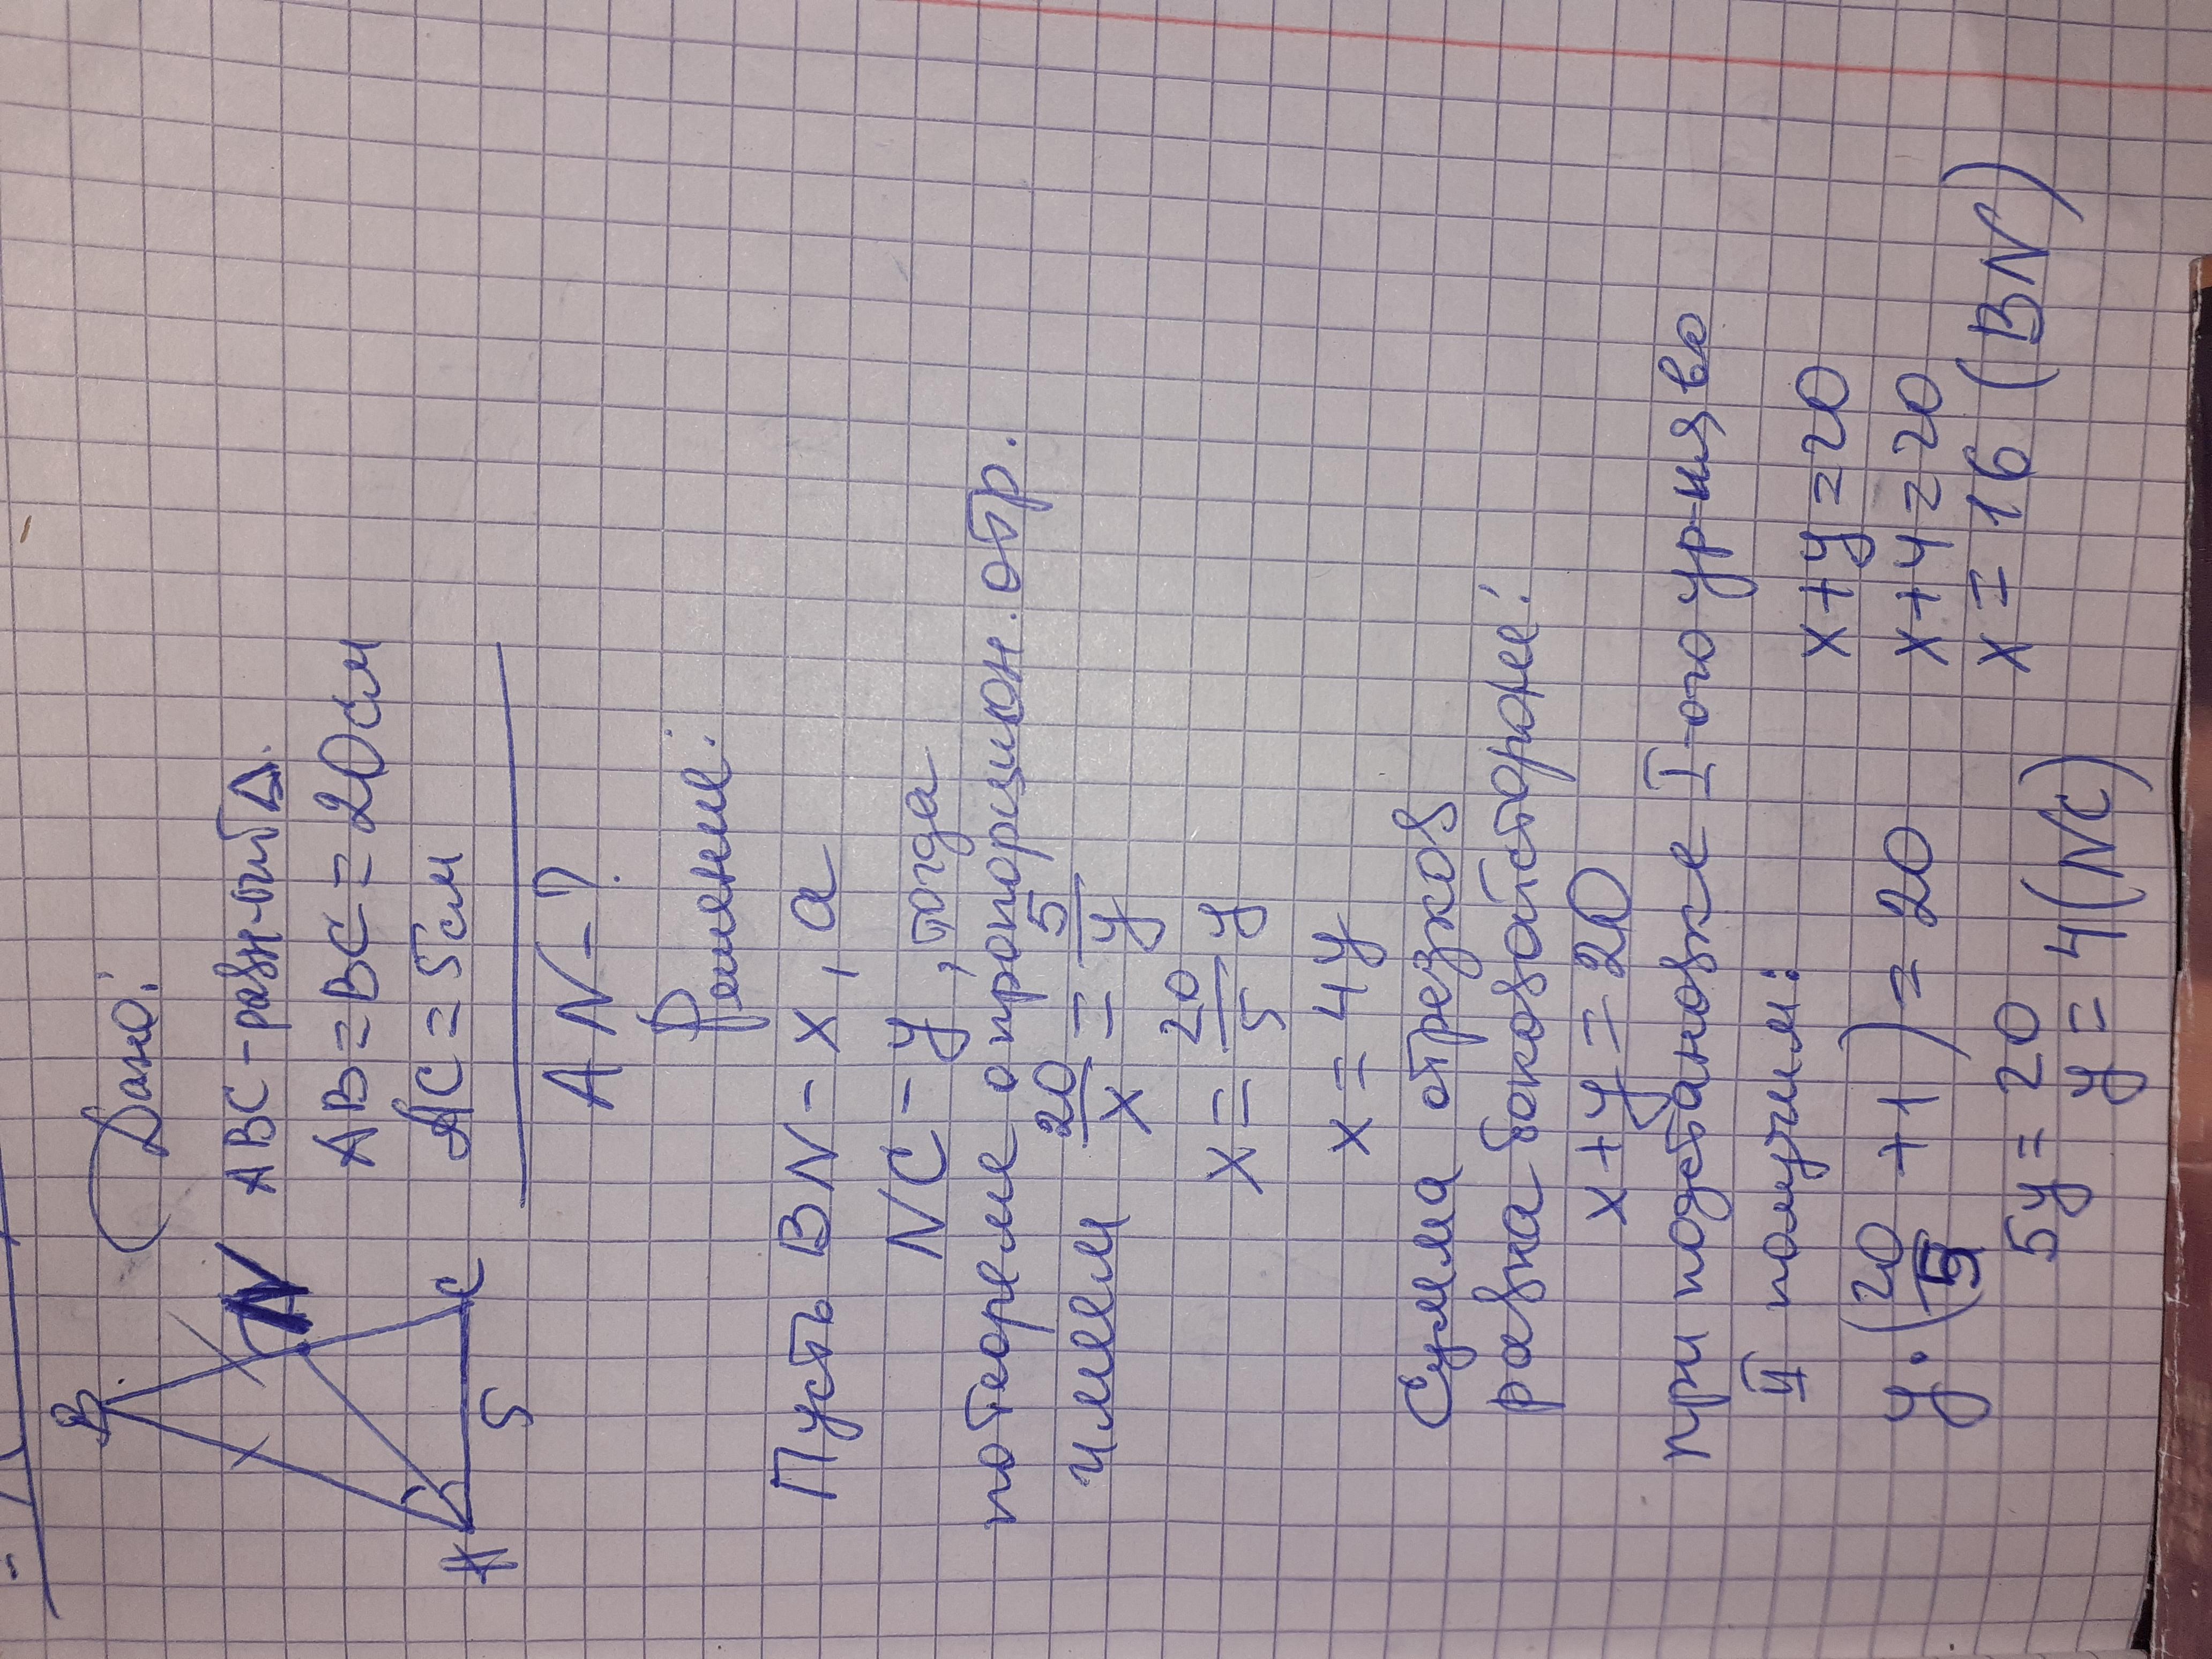 Дано:
B
N
A
C
5
ABC - равн-ый △.
AB = BC = 20 см
AC = 5 см
AN - ?
Решение:
Пусть BN - x, а
NC - y, тогда
по теореме о пропорцион. отр.
имеем 20/x = 5/y
x = 20/5 y
x = 4y
Сумма отрезков
равна боковой стороне:
x + y = 20
при подстановке I-ого ур-ия во
II получим:
y · (20/5 + 1) = 20
x + y = 20
5y = 20
x + 4 = 20
y = 4 (NC)
x = 16 (BN)